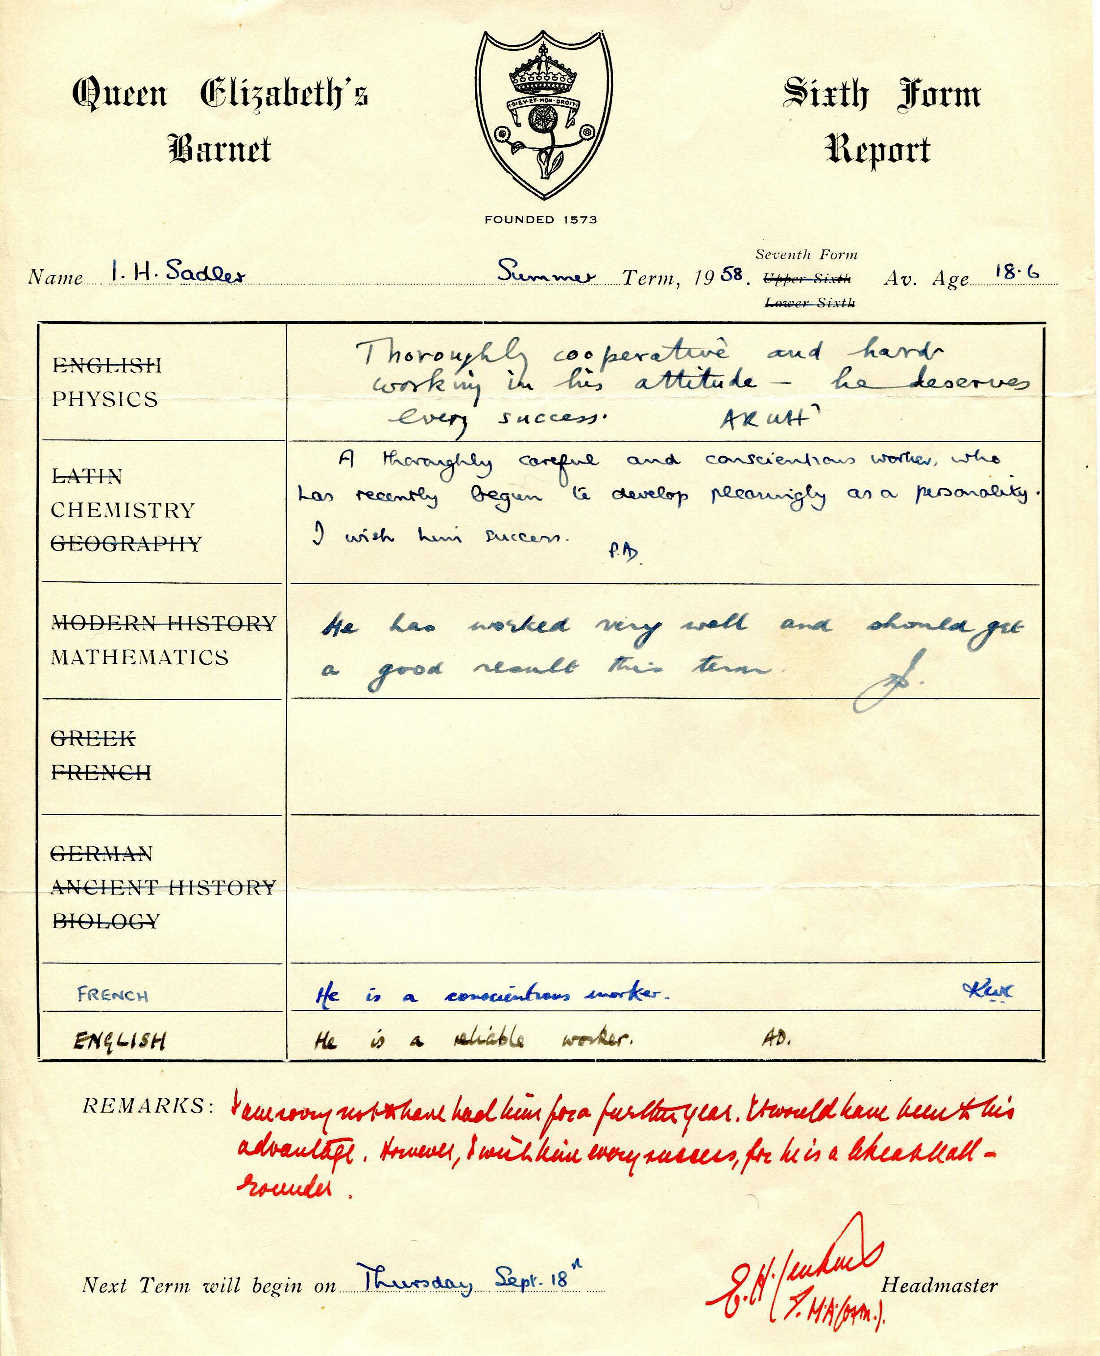 Queen Elizabeth's
Barnet
DIEV·ET·MON·DROIT
FOUNDED 1573
Sixth Form
Report
Name I. H. Sadler Summer Term, 1958. Seventh Form Av. Age 18·6
Upper Sixth
Lower Sixth
ENGLISH
PHYSICS
Thoroughly cooperative and hard
working in his attitude – he deserves
every success.
LATIN
CHEMISTRY
GEOGRAPHY
A thoroughly careful and conscientious worker, who
has recently begun to develop pleasingly as a personality.
I wish him success.
P.A.D.
MODERN HISTORY
MATHEMATICS
He has worked very well and should get
a good result this term.
GREEK
FRENCH
GERMAN
ANCIENT HISTORY
BIOLOGY
FRENCH He is a conscientious worker.
ENGLISH He is a reliable worker. AD.
REMARKS: I am sorry not to have had him for a further year. It would have been to his
advantage. However, I wish him every success, for he is a likeable all-
rounder.
Next Term will begin on Thursday Sept. 18th
E. H. Jenkins
Headmaster